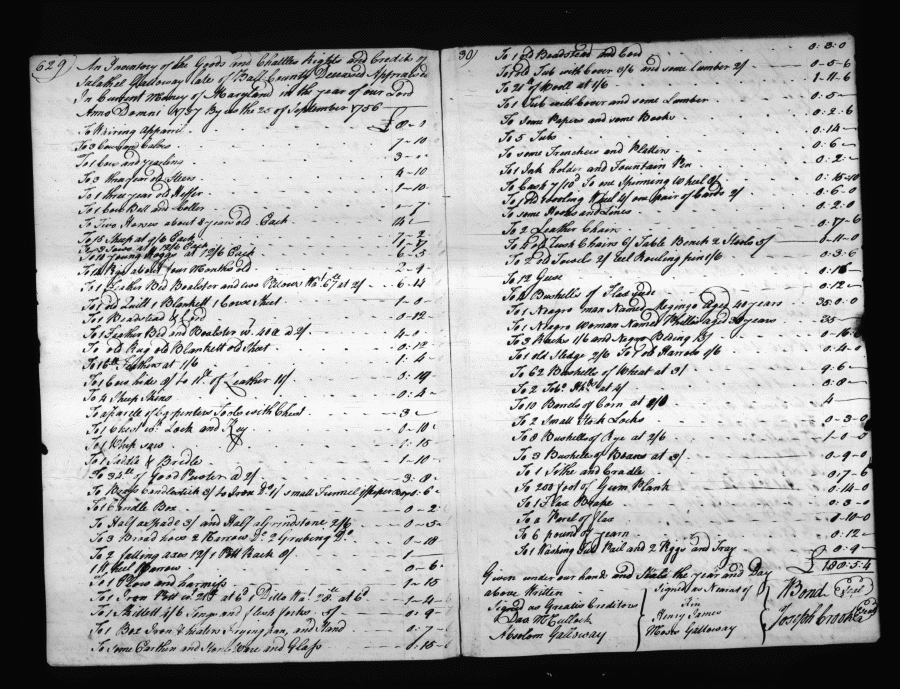 629
An Inventory of the Goods and Chattles Rights and Credits of
Salathel Galloway late of Balt County Deceased Appraised
In Current Money of Maryland in the year of our Lord
Anno Domini 1757 By us the 25 of September 1756
To Wairing Apparil £8-0
To 3 Cows and Calves 7-10
To 1 Cow and yearling 3-0
To 3 three year old Steers 4-10
To 1 three year old Heffer 1-10
To 1 Cow Bell and Coller 7
To Two Horses about 8 year old Each 14-
To 15 Sheep at 9/6 Each 7-2
To 3 Sows at 9/6 Each 1-7
To 10 young Hoggs at 12/6 Each 6-5
To 14 Pigs about four Months old 2-9
To 1 Feather Bed Boalster and two Pillows Wt 67 lb at 2/ 6-14
To 1 old Quilt 1 Blankett 1 Coarse Sheet 1-0
To 1 Beadstead & Cord 0-12
To 1 Feather Bed and Boalster wt 40 lb a 2/ 4-0
To old Rug old Blankett old Sheet 0:12
To 16 lb Feathers at 1/6 1:4
To 1 Cow hide 8/ to 11 lb of Leather 11/ 0:19
To 4 Sheep Skins 0:4
To a parcele of Carpinters Tools with Chest 3
To 1 Chest wth Lock and Key 0-10
To 1 Whip saw 1:15
To 1 Sadle & Bridle 1-10
To 34 lb of good Puter a 2/ 3:8
To Brass Candlestick 3/ to Iron Do 1/ small Tunnel & Peper Box 0:6
To 1 Candle Box 0-2
To Half a Spade 3/ and Half a Grindstone 2/6 0-5
To 3 Broad hows 2 Narrow Do 2 Grubing Do 0-18
To 2 falling axes 12/ 1 Pott Rack 8/ 1
1 Wheel Barrow 0-6
To 1 Plow and harness 1-15
To 1 Iron Pott wt at 6d Ditto Wt 28 lb at 6d 1-4
To 1 Skillett 2/6 Tongs and flesh forke 0-9
To 1 Box Iron & heaters Frying pan, and Stand 0:7
To some Earthen and Stone Ware and Glass 0:15
30
To 1 old Beadstead and Cord 0:3:0
To old Tub with Cover 3/6 and some lumber 2/ 0-5-6
To 21 lb of Wooll at 1/6 1-11-6
To 1 Tub with Cover and some Lumber 0:5
To some Papers and some Books 0:2:6
To 5 Tubs 0:14
To some Trenchers and Platters 0:6
To 1 Ink holder and Fountain Pen 0:2
To Cash 7/10 To one Spinning Wheel 8/ 0:15:10
To 1 old Wheel 4/ one Pair of Cards 2/ 0:6:0
To some Hooks and Lines 0:2:0
To 2 Leather Chairs 0-7-6
To 2 old Rush Chairs 6/ Table Bench 2 Stools 5/ 0-11-0
To 2 old 2/ 1/6 0:3:6
To 12 Geese 0:16
To 4 Bushells of Flaxseed 0:12
To 1 Negro man Named Mingo Aged 40 years 35:0:0
To 1 Negro Woman Named Phillis aged 30 years 35
To 3 Racks 1/6 and Negro Beding 15/ 0-16:6
To 1 old Sledge 2/6 To 1 old Harrow 1/6 0:4:0
To 62 Bushells of Wheat at 3/ 9:6
To 2 at 4/ 0:8
To 10 Barrels of Corn at 8/0 4
To 2 Small Stock Locks 0-3-0
To 8 Bushells of Rye at 2/6 1-0-0
To 3 Bushells of Beans at 3/ 0-9-0
To 1 Sithe and Cradle 0:7-6
To 200 foot of Gum Plank 0:14-0
To 1 Flax Brake 0:3-0
To a Parcel of Flax 0-10-0
To 6 pound of yearn 0:12
To 1 Washing Tub Pail and 2 Piggs and Tray 0:9
£ 180:5:4
Given under our hands and Seals the year and Day
above Written
Signed as Greatis Creditors
Dav McCullock
Absolom Galloway
Signed as Nearest of
Kin
Henry James
Moses Galloway
Bond (Seal)
Joseph Crook (Seal)